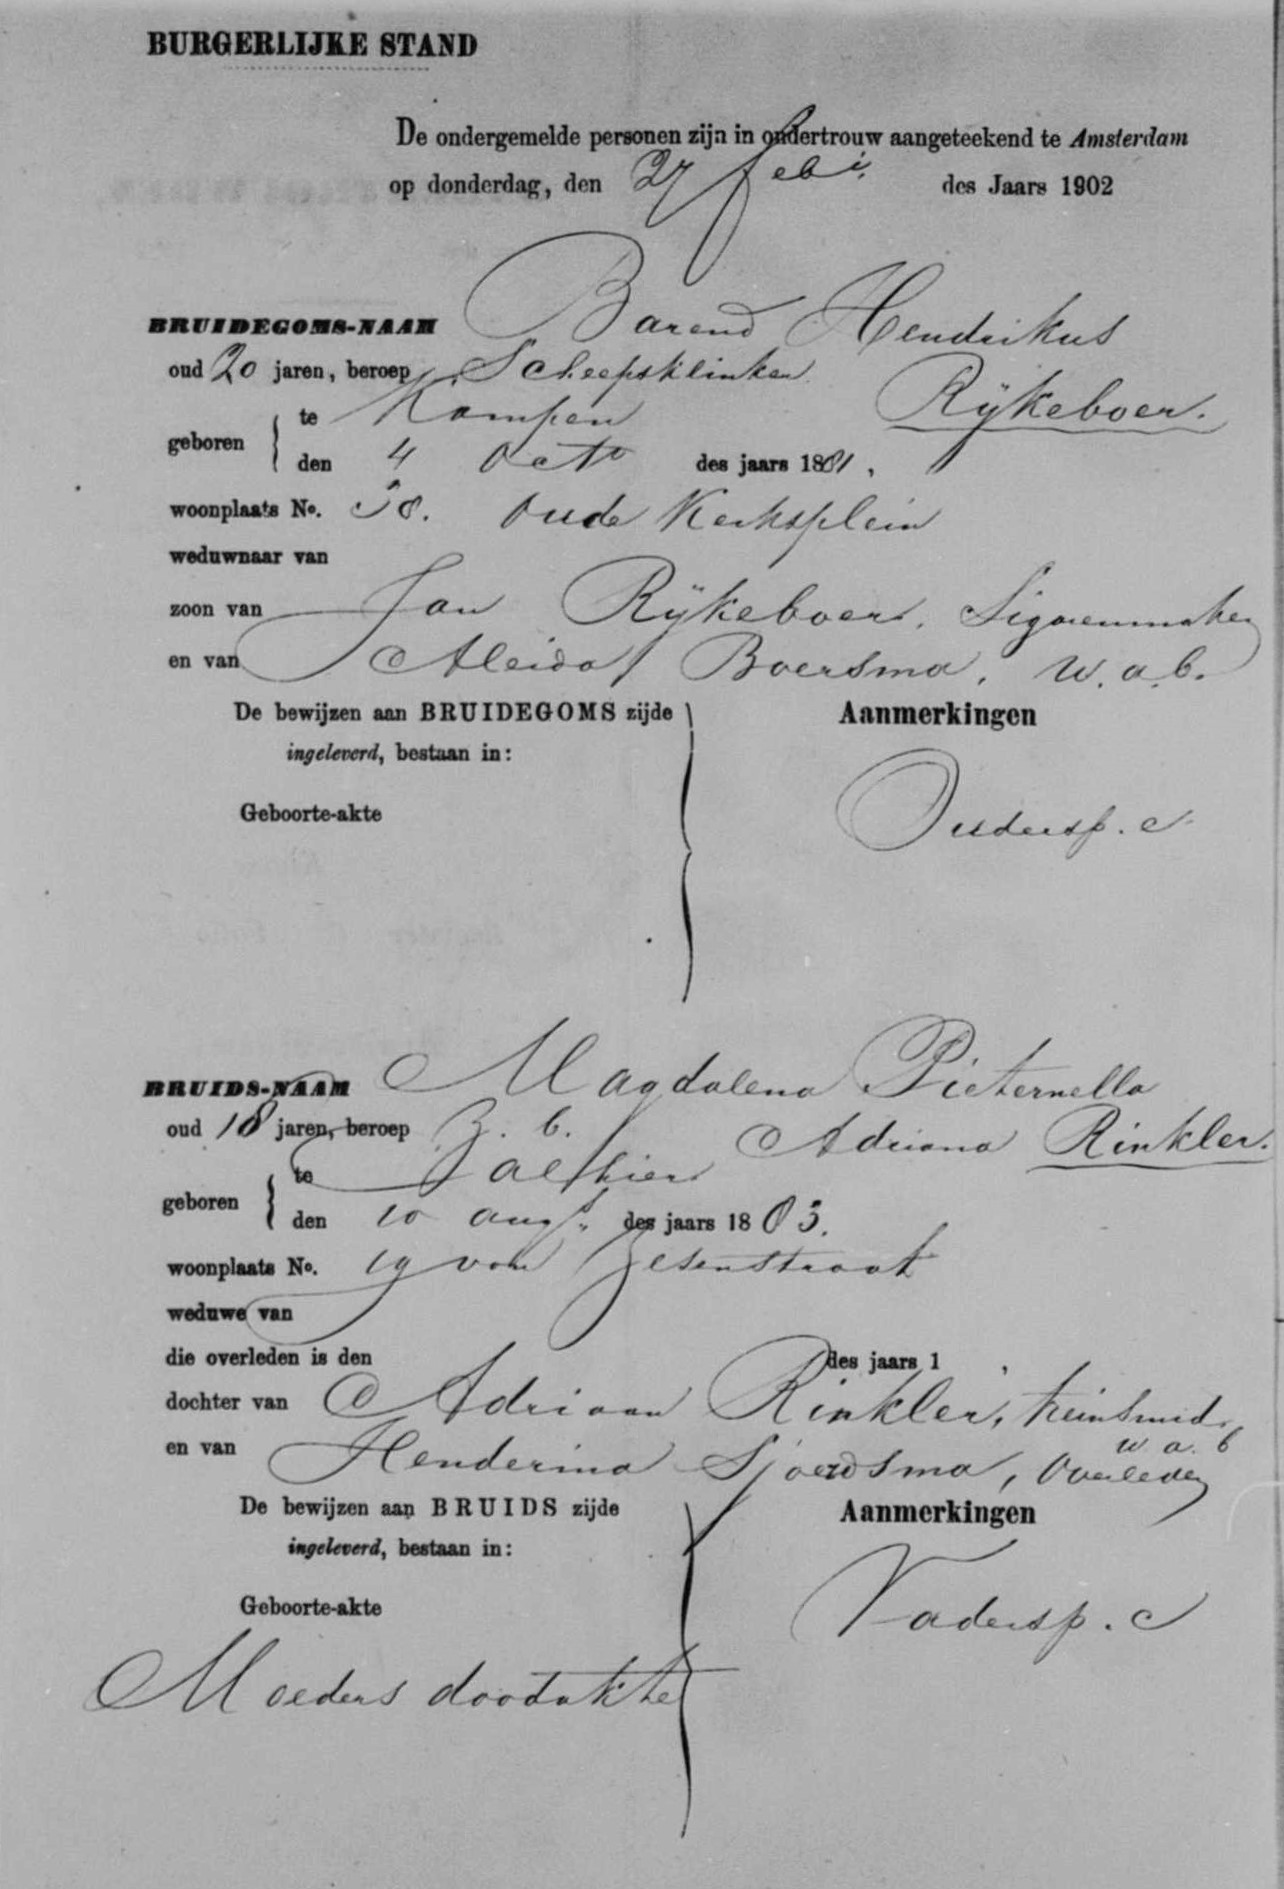 BURGERLIJKE STAND
De ondergemelde personen zijn in ondertrouw aangeteekend te Amsterdam
op donderdag, den 27 febr. des Jaars 1902
BRUIDEGOMS-NAAM Barend Hendrikus
oud 20 jaren, beroep Scheepsklinker Rijkeboer.
geboren te Kampen
den 4 Octr des jaars 1881,
woonplaats No. 58. Oude Kerksplein
weduwnaar van
zoon van Jan Rijkeboer, Sigarenmaker
en van Aleida Boersma, w. a. b.
De bewijzen aan BRUIDEGOMS zijde
ingeleverd, bestaan in:
Aanmerkingen
Geboorte-akte
Oudersp. c
BRUIDS-NAAM Magdalena Pieternella
oud 18 jaren, beroep Z. b. Adriana Rinkler.
geboren te alhier
den 10 augs. des jaars 1883.
woonplaats No. 19 von Zesenstraat
weduwe van
die overleden is den des jaars 1
dochter van Adriaan Rinkler,
w a. b
en van Henderina Sjoerdsma, Overleden
De bewijzen aan BRUIDS zijde
ingeleverd, bestaan in:
Aanmerkingen
Geboorte-akte
Vadersp. c
Moeders doodakte